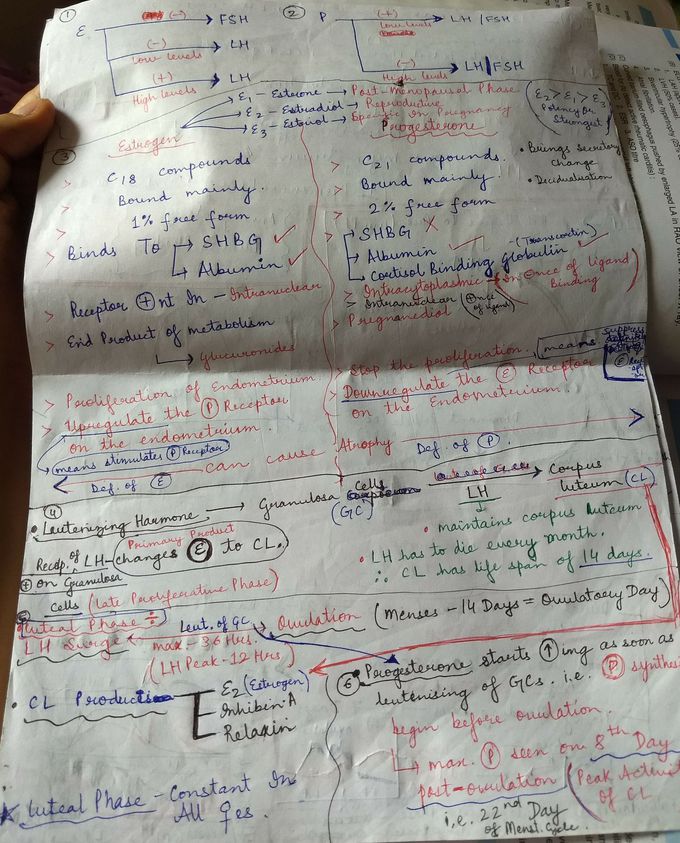 ① (-) → FSH
E
(-) → LH
Low levels
(+) → LH
High levels
② P (+) → LH / FSH
Low levels
(-) → LH / FSH
High levels
E₁ - Esterone → Post-Menopausal Phase
E₂ - Estradiol → Reproductive
E₃ - Estriol → Specific In Pregnancy
E₂ > E₁ > E₃
Potency Or
Strongest
③ Estrogen
> C18 compounds
> Bound mainly.
> 1% free form
> Binds To → SHBG ✓
→ Albumin ✓
> Receptor ⊕nt In - Intranuclear
> End Product of metabolism
→ Glucuronides
> Proliferation of Endometrium.
> Upregulate the Ⓟ Receptor
on the endometrium.
means stimulates Ⓟ Receptor
Progesterone
> C21 compounds.
> Bound mainly.
> 2% free form
• Brings secretory
change
• Decidualuation
> SHBG ✗
Albumin ✓
- (Transcortin)
Cortisol Binding Globulin ✓
> Intracytoplasmic - In ⊖nce of ligand
Binding
> Intranuclear (⊕nce
of ligand)
> Pregnanediol
> Stop the proliferation. means
> Downregulate the Ⓔ Receptor
on the Endometrium.
← Def. of Ⓔ - can cause Atrophy Def. of Ⓟ. →
④
• Leuterizing Harmone → Granulosa cells
(GC)
LH
→ Corpus
luteum (CL)
Primary Product
Recep. of LH - changes Ⓔ to CL.
⊕ on Granulosa
cells (late Proliferative Phase)
• maintains corpus luteum
• LH has to die every month.
∴ CL has life span of 14 days.
⑤
• Luteal Phase ÷ Leut. of GC → Ovulation (Menses - 14 Days = Ovulatory Day)
LH Surge - max - 36 Hrs.
(LH Peak - 12 Hrs)
• CL Production
E₂ (Estrogen)
Inhibin-A
Relaxin
★ Luteal Phase - Constant In
All ♀es.
⑥ Progesterone starts ↑ing as soon as
leutenising of GCs. i.e. Ⓟ synthesis
begin before ovulation.
→ max. Ⓟ seen on 8th Day
post-ovulation (Peak Activity
of CL
i.e. 22nd Day
of Menst. Cycle.